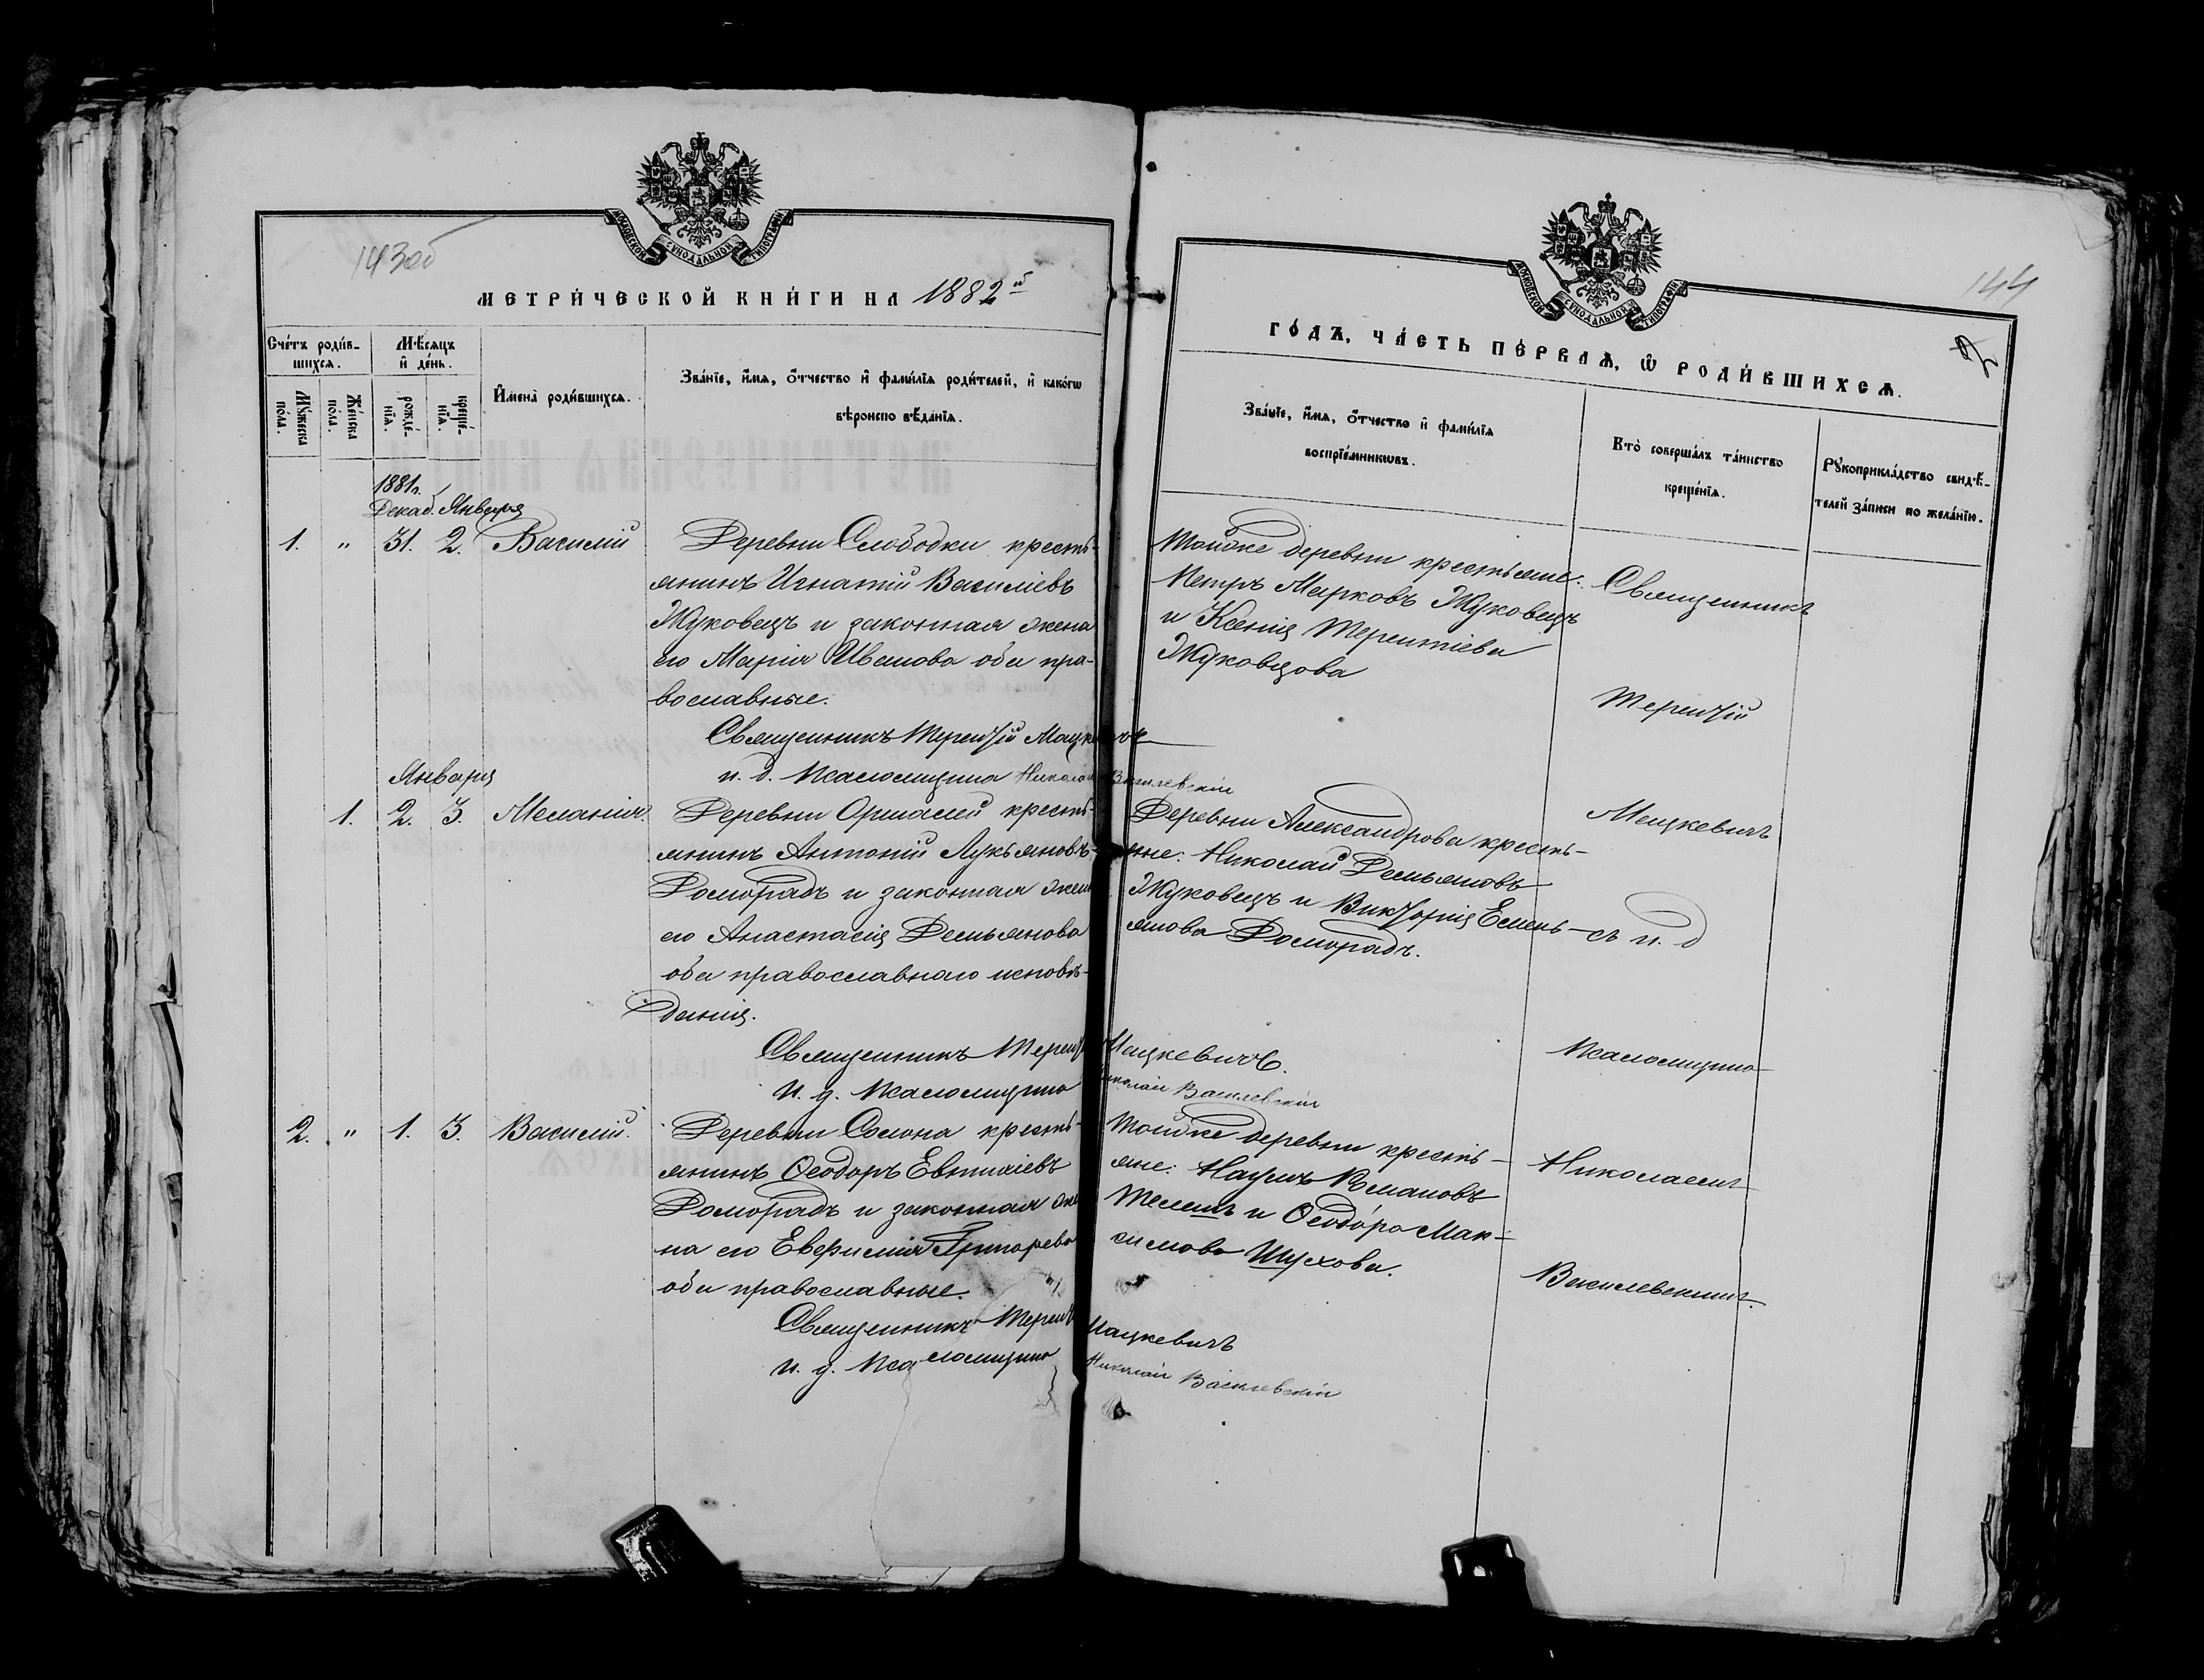 143об
МОСКОВСКОЙ СѴНОДАЛЬНОЙ ТИПОГРАФІИ
МЕТРИ́ЧЕСКОЙ КНИ́ГИ НА 1882й
Сче́тъ роди́в-
шихся.
Мѣ́сяцъ
и҆ де́нь.
Мꙋ́жеска по́ла.
Же́нска по́ла.
рожде́-нїѧ.
креще́-нїѧ.
И҆мена̀ роди́вшихсѧ.
Зва́нїе, и҆́мѧ, ѻ҆́тчество и҆ фами́лїѧ роди́телей, и҆ како́гѡ
вѣроисповѣ́данїѧ.
1881г.
Декаб. Января
1. " 31. 2. Василій
Деревни Слободки кресть-
янинъ Игнатій Василіевъ
Жуковецъ и законная жена
его Марія Иванова оба пра-
вославные.
Священникъ Терентій Мацкевичъ
и. д. Псаломщика Николай Василевскій
Января
1. 2. 3. Меланія.
Деревни Ормалей кресть-
янинъ Антоній Лукьяновъ
Доморадъ и законная жена
его Анастасія Демьянова
оба православнаго исповѣ-
данія.
Священникъ Терентій Мацкевичъ.
И. д. Псаломщика Николай Василевскій
2. " 1. 3. Василій.
Деревни Солона кресть-
янинъ Ѳеодоръ Евтихіевъ
Доморадъ и законная же-
на его Евфимія Григорева
оба православные.
Священникъ Терентій Мацкевичъ
и. д. Псаломщика Николай Василевскій
144
МОСКОВСКОЙ СѴНОДАЛЬНОЙ ТИПОГРАФІИ
ГО́ДЪ, ЧА́СТЬ ПЕ́РВАѦ, Ѡ҆ РОДИ́ВШИХСѦ.
2
Зва́нїе, и҆́мѧ, ѻ҆́тчество и҆ фами́лїѧ
воспрїе́мникѡвъ.
Кто̀ соверша́лъ та́инство
креще́нїѧ.
Рꙋкоприкла́дство свидѣ́-
телей за́писи по жела́нїю.
Тойже деревни крестьяне:
Петръ Марковъ Жуковецъ
и Ксенія Терентіева
Жуковцова
Деревни Александрова кресть-
яне: Николай Демьяновъ
Жуковецъ и Викторія Емель-
янова Доморадъ.
Тойже деревни кресть-
яне: Наумъ Романовъ
Телешъ и Ѳеодора Мак-
симова Шухова.
Священникъ
Терентій
Мацкевичъ
съ и. д
Псаломщика
Николаемъ
Василевскимъ.